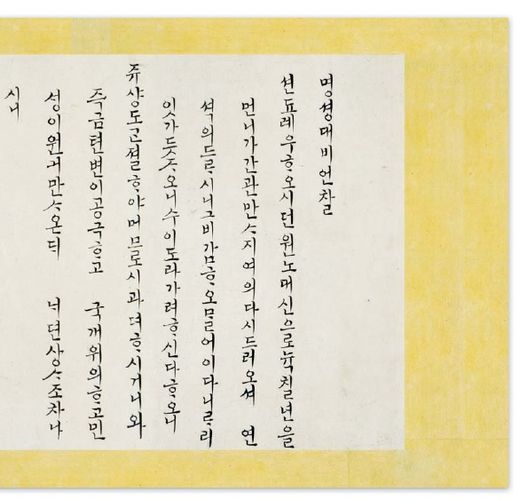 명셩대비언찰
션됴례우ᄒᆞ오시던원노대신으로뉵칠년을
먼니가간관만ᄉᆞ지여의다시드러오셔 연
셕의드ᄅᆞ시니그비감ᄒᆞ오믈어이다니ᄅᆞ리
잇가듯ᄌᆞ오니수이도라가려ᄒᆞ신다ᄒᆞ오니
쥬샹도고졀ᄒᆞ야머므로시과뎌ᄒᆞ시거니와
즉금텬변이공극ᄒᆞ고 국개위의ᄒᆞ고민
셩이원거만ᄉᆞ온ᄃᆡ 상ᄉᆞ조차나
시니